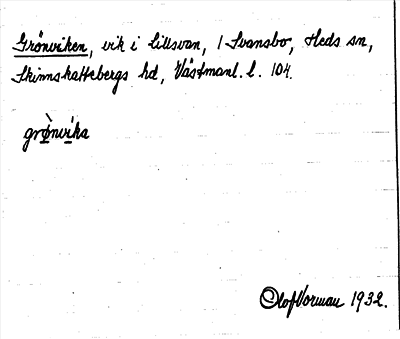 Grönviken, vik i Lillsvan, 1 Svansbo, Heds sn,
Skinnskattebergs hd, Västmanl. l. 104.
grø̀nvika
Olof Vorman 1932.